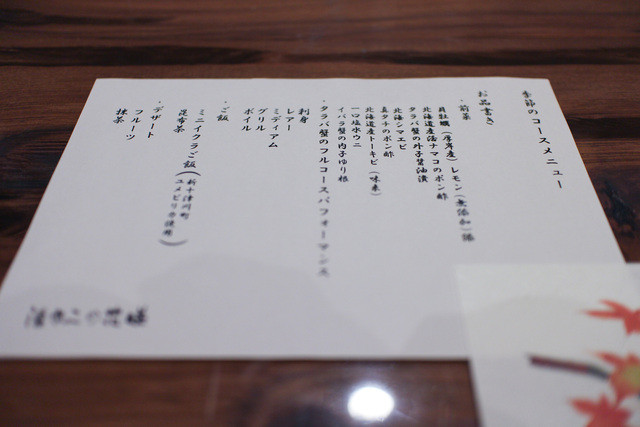 季節のコースメニュー
お品書き
・前菜
貝牡蠣(厚岸産)レモン(無添加)添
北海道産活ナマコのポン酢
タラバ蟹の外子醤油漬
北海シマエビ
真タチのポン酢
北海道産トーキビ(味来)
一口塩水ウニ
イバラ蟹の内子ゆり根
・タラバ蟹のフルコースパフォーマンス
刺身
レアー
ミディアム
グリル
ボイル
・ご飯
ミニイクラご飯(新十津川町
ユメピリカ使用)
昆布茶
・デザート
フルーツ
抹茶